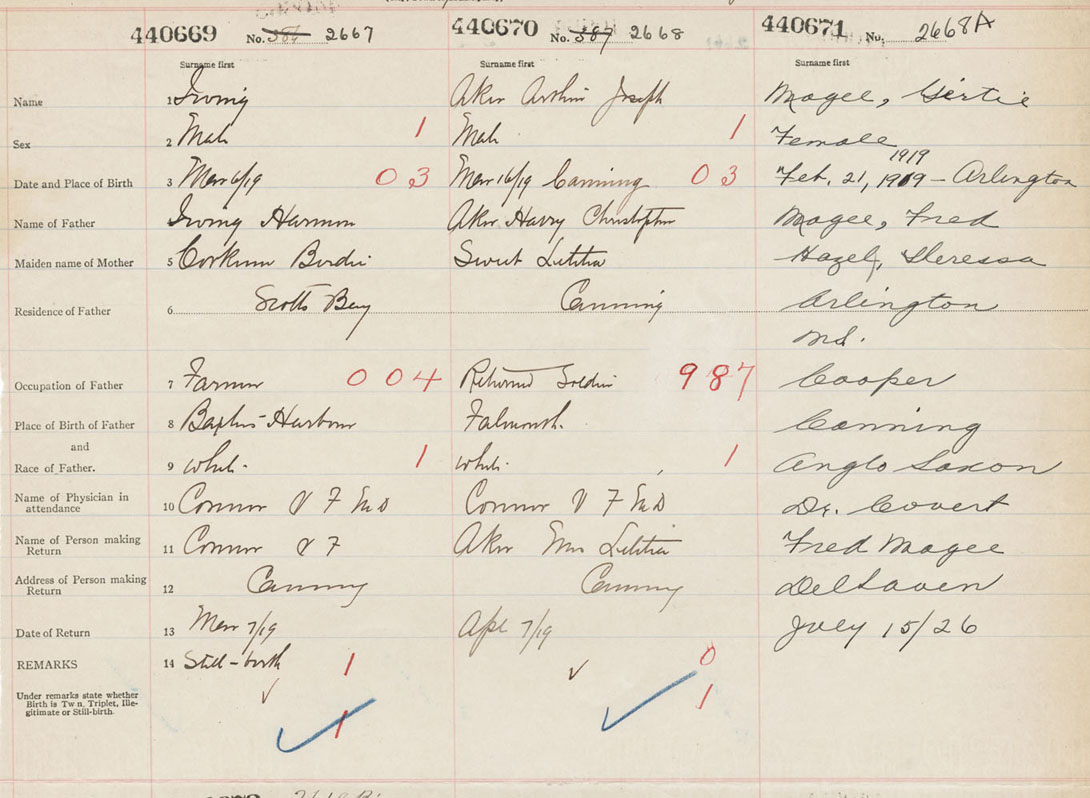 440669 No. 387 2667
440670 No. 387 2668
440671 No. 2668A
Surname first Surname first Surname first
Name 1 Irving Aker Arthur Joseph Magee, Gertie
Sex 2 Male 1 Male 1 Female
1919
Date and Place of Birth 3 Mar 6/19 03 Mar 16/19 Canning 03 Feb. 21, 1919 - Arlington
Name of Father 4 Irving Harmon Aker Harry Christopher Magee, Fred
Maiden name of Mother 5 Corkum Birdie Sweet Letitia Hazel, Theressa
Residence of Father 6 Scotts Bay Canning Arlington
N.S.
Occupation of Father 7 Farmer 004 Returned Soldier 987 Cooper
Place of Birth of Father 8 Baxters Harbour Falmouth. Canning
and
Race of Father. 9 White. 1 White. 1 Anglo Saxon
Name of Physician in
attendance 10 Connor F MD Connor F MD Dr. Covert
Name of Person making
Return 11 Connor F Aker Mrs Letitia Fred Magee
Address of Person making
Return 12 Canning Canning Delhaven
Date of Return 13 Mar 7/19 Apl 7/19 July 15/26
REMARKS 14 Still-birth 1 0
Under remarks state whether
Birth is Twn, Triplet, Ille-
gitimate or Still-birth.
1 1